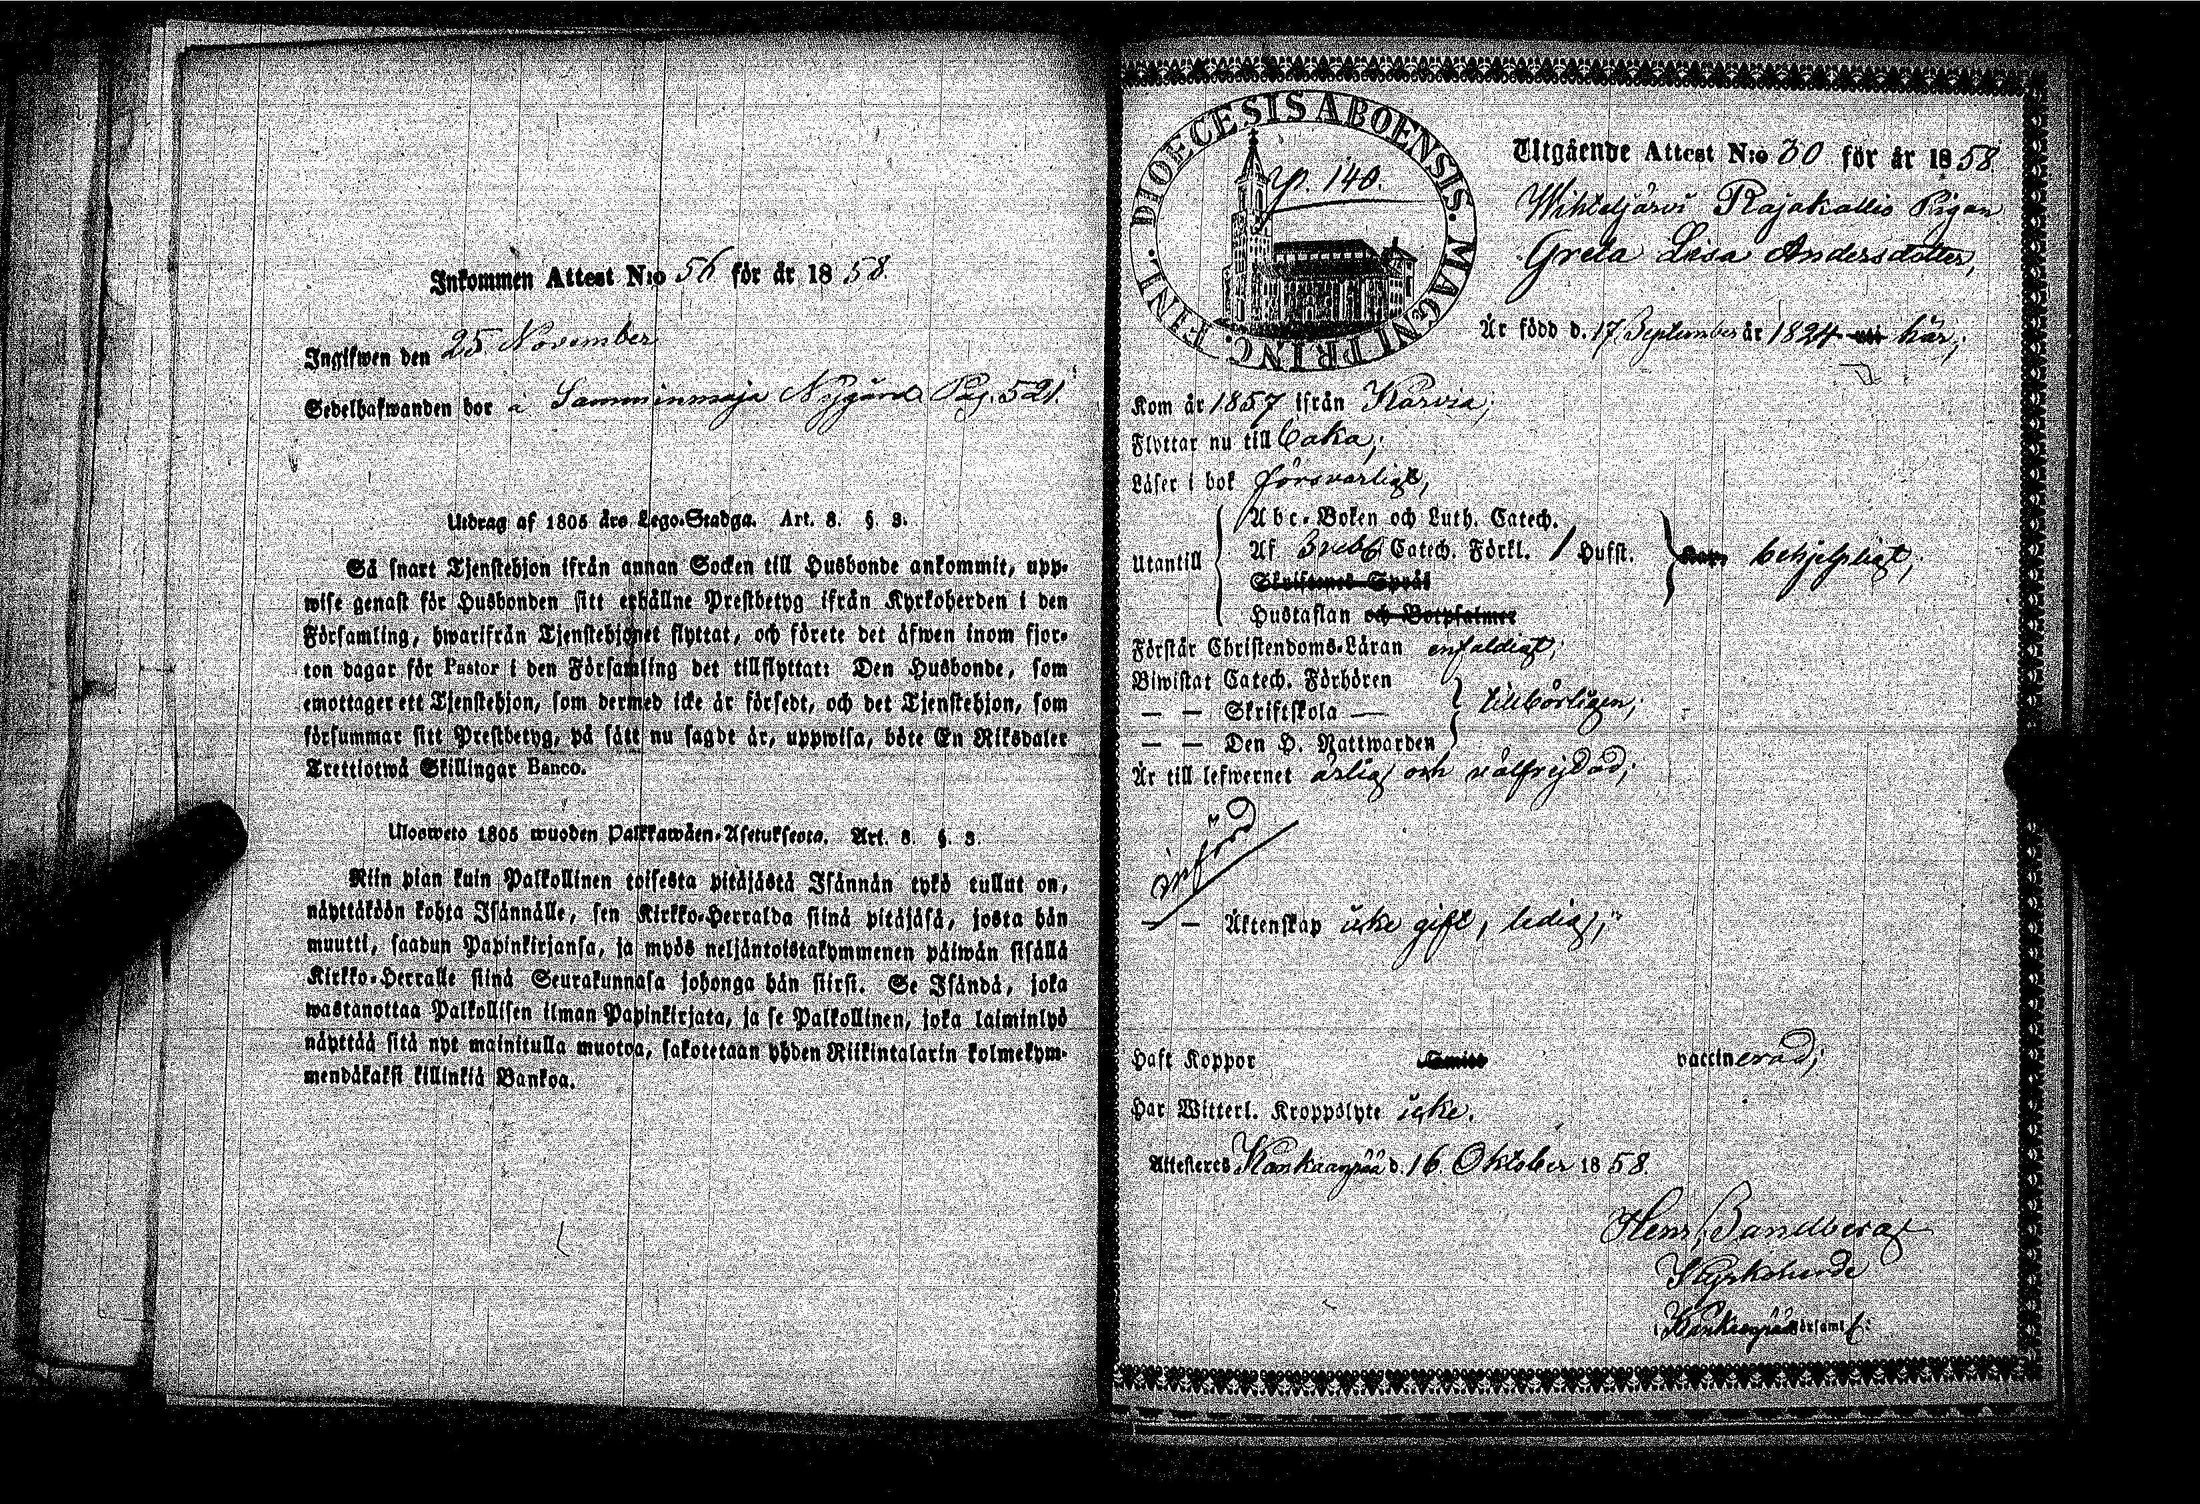 Inkommen Attest N:o 56 för år 1858.
Ingifwen den 25 November
Sedelhafwanden bor å Samminmaja Nygård Pag. 521.
Utdrag af 1805 års Lego-Stadga. Art. 8. §. 3.
Så snart Tjenstehjon ifrån annan Socken till Husbonde ankommit, upp-
wise genast för Husbonden sitt erhållne Prestbetyg ifrån Kyrkoherden i den
Församling, hwarifrån Tjenstehjonet flyttat, och förete det äfwen inom fjor-
ton dagar för Pastor i den Församling det tillflyttat: Den Husbonde, som
emottager ett Tjenstehjon, som dermed icke är försedt, och det Tjenstehjon, som
försummar sitt Prestbetyg, på sätt nu sagdt är, uppwisa, böte En Riksdaler
Trettiotwå Skillingar Banco.
Ulosweto 1805 wuoden Palkkawäen-Asetuksesta. Art. 8. §. 3.
Niin pian kuin Palkollinen toisesta pitäjästä Isännän tykö tullut on,
näyttäköön kohta Isännälle, sen Kirkko-Herralda siinä pitäjäsä, josta hän
muutti, saadun Papinkirjansa, ja myös neljäntoistakymmenen päiwän sisällä
Kirkko-Herralle siinä Seurakunnasa johonga hän siirsi. Se Isändä, joka
wastanottaa Palkollisen ilman Papinkirjata, ja se Palkollinen, joka laiminlyö
näyttää sitä nyt mainitulla muotoa, sakotetaan yhden Riikintalarin kolmekym-
mendäkaksi killinkiä Bankoa.
DIOECESIS ABOENSIS. MAGNI PRINC. FINL.
p. 140.
Utgående Attest N:o 30 för år 1858.
Wihteljärvi Rajakallio Pigan
Greta Lisa Andersdotter,
Är född d. 17 September år 1824 uti här;
Kom år 1857 ifrån Karvia;
Flyttar nu till
Läser i bok försvarligt,
Utantill
Abc-Boken och Luth. Catech.
Af Svebil. Catech. Förkl. 1 Hufst.
behjelpligt;
Skriftenes Språk
Hustaflan och Botpsalmer
Förstår Christendoms-Läran enfaldigt;
Biwistat Catech. Förhören
— — Skriftskola —
tillbörligen;
— — Den H. Nattwarden
Är till lefwernet ärlig och välfrejdad;
införd
— — Äktenskap icke gift, ledig;
Haft Koppor vaccinerad;
Har Witterl. Kroppslyte icke.
Attesteres Kankaanpää d. 16 Oktober 1858.
Henr. Sandberg
Kyrkoherde
i Kankaanpää församl.